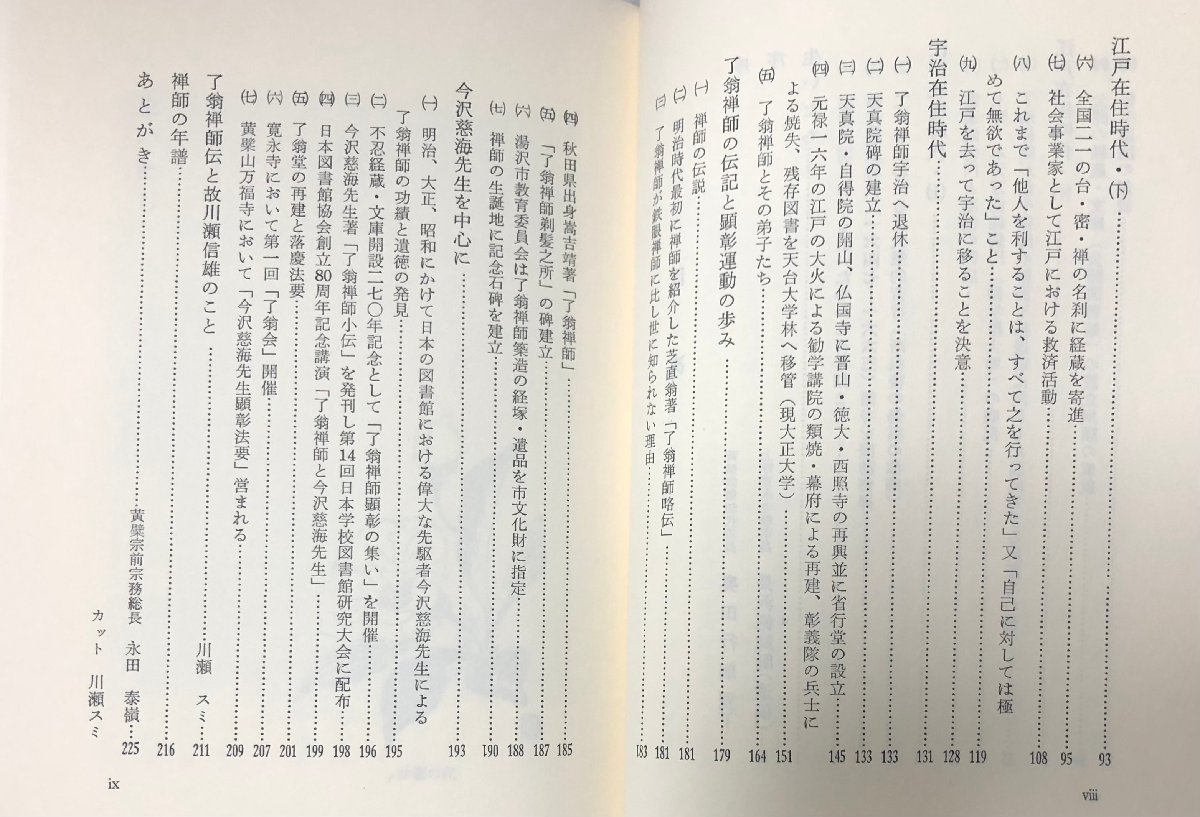 江戸在住時代・(下)……93
㈥ 全国二一の台・密・禅の名刹に経蔵を寄進……95
㈦ 社会事業家として江戸における救済活動……108
㈧ これまで「他人を利することは、すべて之を行ってきた」又「自己に対しては極
めて無欲であった」こと……119
㈨ 江戸を去って宇治に移ることを決意……128
宇治在住時代……131
㈠ 了翁禅師宇治へ退休……133
㈡ 天真院碑の建立……133
㈢ 天真院・自得院の開山、仏国寺に晋山・徳大・西照寺の再興並に省行堂の設立……145
㈣ 元禄一六年の江戸の大火による勧学講院の類焼・幕府による再建、彰義隊の兵士に
よる焼失、残存図書を天台大学林へ移管(現大正大学)……151
㈤ 了翁禅師とその弟子たち……164
了翁禅師の伝記と顕彰運動の歩み……179
㈠ 禅師の伝説……181
㈡ 明治時代最初に禅師を紹介した芝直翁著「了翁禅師略伝」……181
㈢ 了翁禅師が鉄眼禅師に比し世に知られない理由……183
viii
㈣ 秋田県出身嵩吉靖著「了翁禅師」……185
㈤ 「了翁禅師剃髪之所」の碑建立……187
㈥ 湯沢市教育委員会は了翁禅師築造の経塚・遺品を市文化財に指定……188
㈦ 禅師の生誕地に記念石碑を建立……190
今沢慈海先生を中心に……193
㈠ 明治、大正、昭和にかけて日本の図書館における偉大な先駆者今沢慈海先生による
了翁禅師の功績と遺徳の発見……195
㈡ 不忍経蔵・文庫開設二七〇年記念として「了翁禅師顕彰の集い」を開催……196
㈢ 今沢慈海先生著「了翁禅師小伝」を発刊し第14回日本学校図書館研究大会に配布……198
㈣ 日本図書館協会創立80周年記念講演「了翁禅師と今沢慈海先生」……199
㈤ 了翁堂の再建と落慶法要……201
㈥ 寛永寺において第一回「了翁会」開催……207
㈦ 黄檗山万福寺において「今沢慈海先生顕彰法要」営まれる……209
了翁禅師伝と故川瀬信雄のこと……川瀬 スミ……211
禅師の年譜……216
あとがき……黄檗宗前宗務総長 永田 泰嶺……225
カット 川瀬スミ
ix